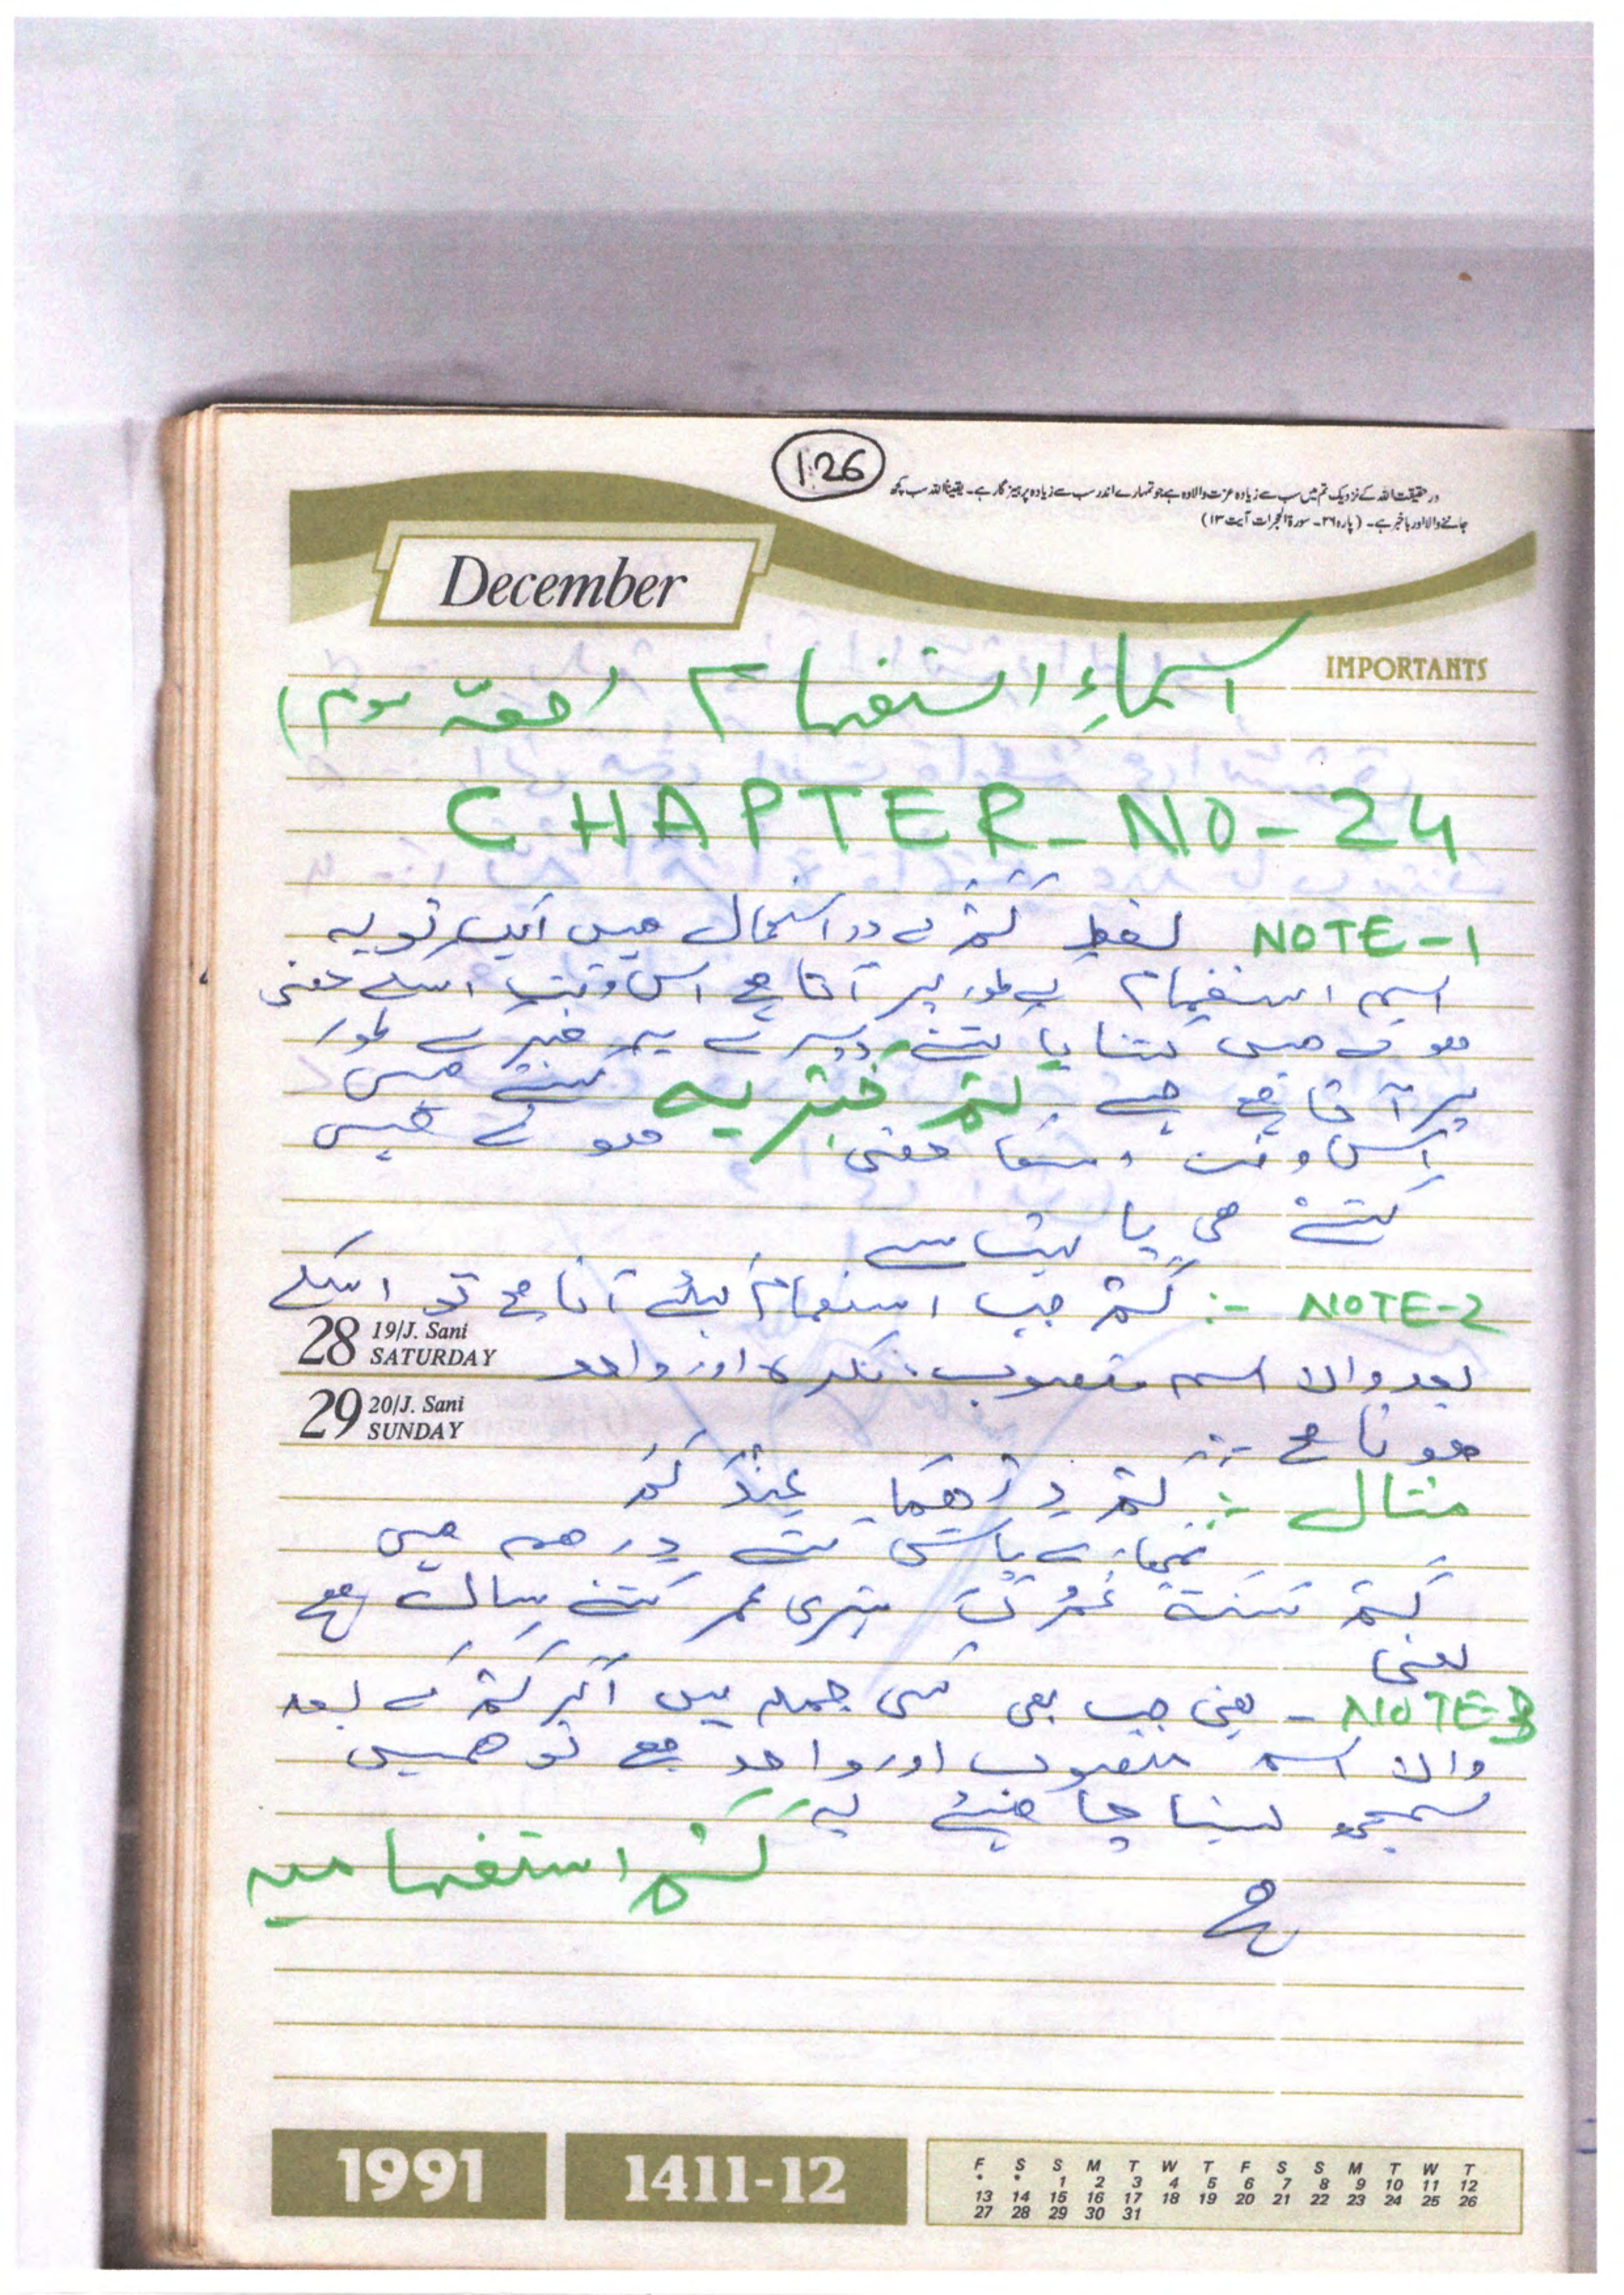 126
در حقیقت اللہ کے نزدیک تم میں سب سے زیادہ عزت والا وہ ہے جو تمہارے اندر سب سے زیادہ پرہیز گار ہے۔ یقیناً اللہ سب کچھ
جاننے والا اور باخبر ہے۔ (پارہ ۲۶۔ سورۃ الحجرات آیت ۱۳)
December
IMPORTANTS
اسماءِ استفہام (حصّہ سوم)
CHAPTER-NO-24
NOTE-1 لفظ کَمْ کے دو استعمال ہیں ایک تو یہ
اسم استفہام کے طور پر آتا ہے اس وقت اسکے معنی
ہوتے ہیں کتنا یا کتنے دوسرے یہ خبر کے طور
پر آتا ہے جسے کَمْ خَبَریہ کہتے ہیں
اس وقت اسکا معنی ہوتے ہیں
کتنے ہی یا بہت سے
NOTE-2 :- کَمْ جب استفہام کیلئے آتا ہے تو اسکے
28 19/J. Sani SATURDAY
بعد والا اسم منصوب، نکرہ اور واحد
29 20/J. Sani SUNDAY
ہوتا ہے :-
مثال :- کَمْ دِرْھَمًا عِنْدَکُمْ
تمھارے پاس کتنے درھم ہیں
کَمْ سَنَةً عُمْرُكَ تیری عمر کتنے سال ہے
یعنی
NOTE-3 - یعنی جب بھی کسی جملہ میں اگر کَمْ کے بعد
والا اسم منصوب اور واحد ہے تو ہمیں
سمجھ لینا چاھیئے کہ
کَمْ استفہامیہ
ہے
1991
1411-12
F S S M T W T F S S M T W T
* * 1 2 3 4 5 6 7 8 9 10 11 12
13 14 15 16 17 18 19 20 21 22 23 24 25 26
27 28 29 30 31